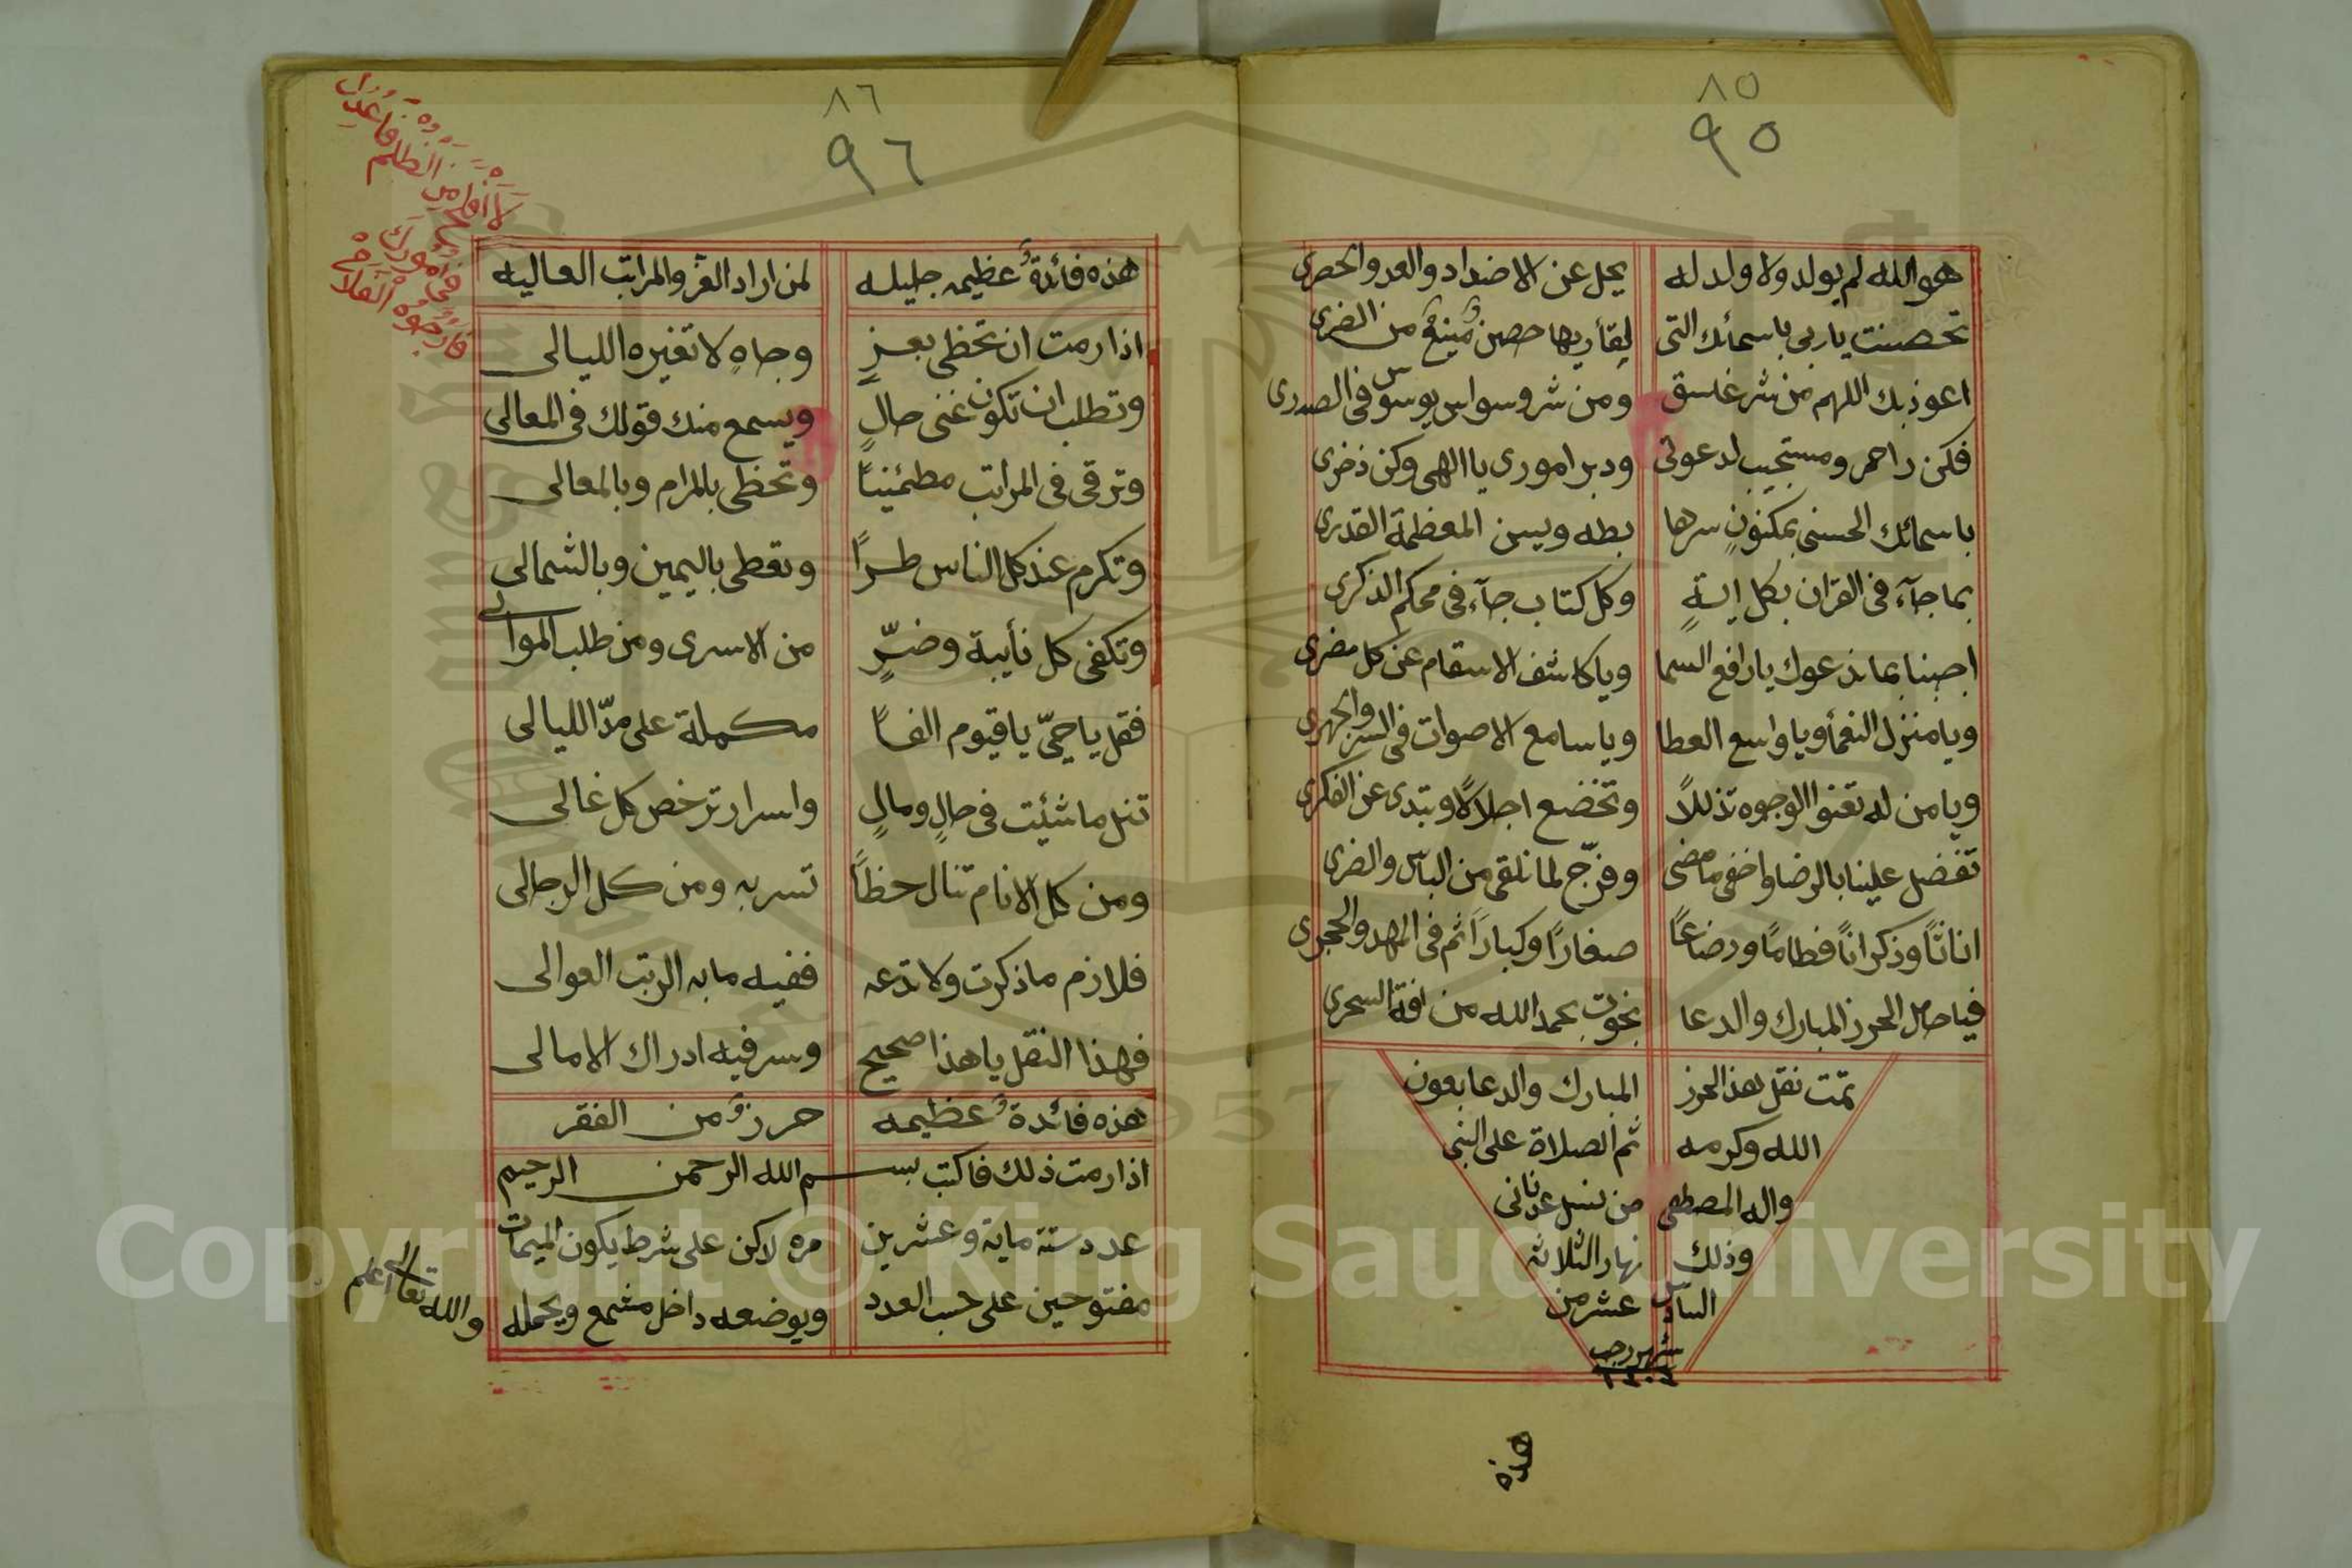 ٨٥
٩٥
هو الله لم يولد ولا ولد له يجل عن الاضداد والعد والحصرى
تحصنت يا ربى باسمائك التى لقاريها حصن مُنيعٌ من الضرى
اعوذ بك اللهم من شر غاسق ومن شر وسواس يوسوس فى الصدرى
فكن راحم ومستجيب لدعوتى ودبر امورى يا الهى وكن ذخرى
باسمائك الحسنى بمكنونِ سرها بطه ويسن المعظمة القدرى
بما جآء فى القران بكل ايةٍ وكل كتاب جآء فى محكم الذكرى
اجبنا بما ندعوك يا رافع السما ويا كاشف الاسقام عن كل مضرى
ويا منزل النعمأ ويا واسع العطا ويا سامع الاصوات فى السر والجهرى
ويا من له تعنوا الوجوه تذللاً وتخضع اجلالاً وتبدى عن الفكرى
تفضل علينا بالرضا واخفى ما مضى وفرّج لما نلقى من الباس والضرى
اناثاً وذكراناً فطاماً ورضاعاً صغاراً وكباراً ثم فى المهد والحجرى
فيا حامل الحرز المبارك والدعا نجوت بحمد الله من افة السحرى
تمت نقل هذ الحرز المبارك والدعا بعون
الله وكرمه ثم الصلاة على النبى
واله المصطفى من نسل عدنانى
وذلك نهار الثلاثه
السادس عشر من
شهر رجب
هذه
٨٦
٩٦
هذه فائدةٌ عظيمه جليله لمن اراد العز والمراتب العاليه
اذا رمت ان تحظى بعزٍ وجاهٍ لا تغيره الليالى
وتطلب ان تكون غنى حالٍ ويسمع منك قولك فى المعالى
وترقى فى المراتب مطمئنياً وتحظى بالمرام وبالمعالى
وتكرم عند كل الناس طراً وتعطى باليمين وبالشمالى
وتكفى كل نأيبة وضرٍّ من الاسرى ومن طلب الموالى
فقل يا حىّ يا قيوم الفاً مكملة على مدّ الليالى
تنل ما شئت فى حالٍ ومالٍ واسرار ترخص كل غالى
ومن كل الانام تنال حظاً تسر به ومن كل الرجالى
فلازم ما ذكرت ولا تدعه ففيه ما به الرتب العوالى
فهذا النقل يا هذا صحيح وسر فيه ادراك الامالى
هذه فائدةٌ عظيمه حرزٌ من الفقر
اذا رمت ذلك فاكتب بسم الله الرحمن الرحيم
عدد ستة ماية وعشرين مره لاكن على شرط يكون الميمات
مفتوحين على حسب العدد ويوضعه داخل مشمع ويحمله
والله تعالى اعلم